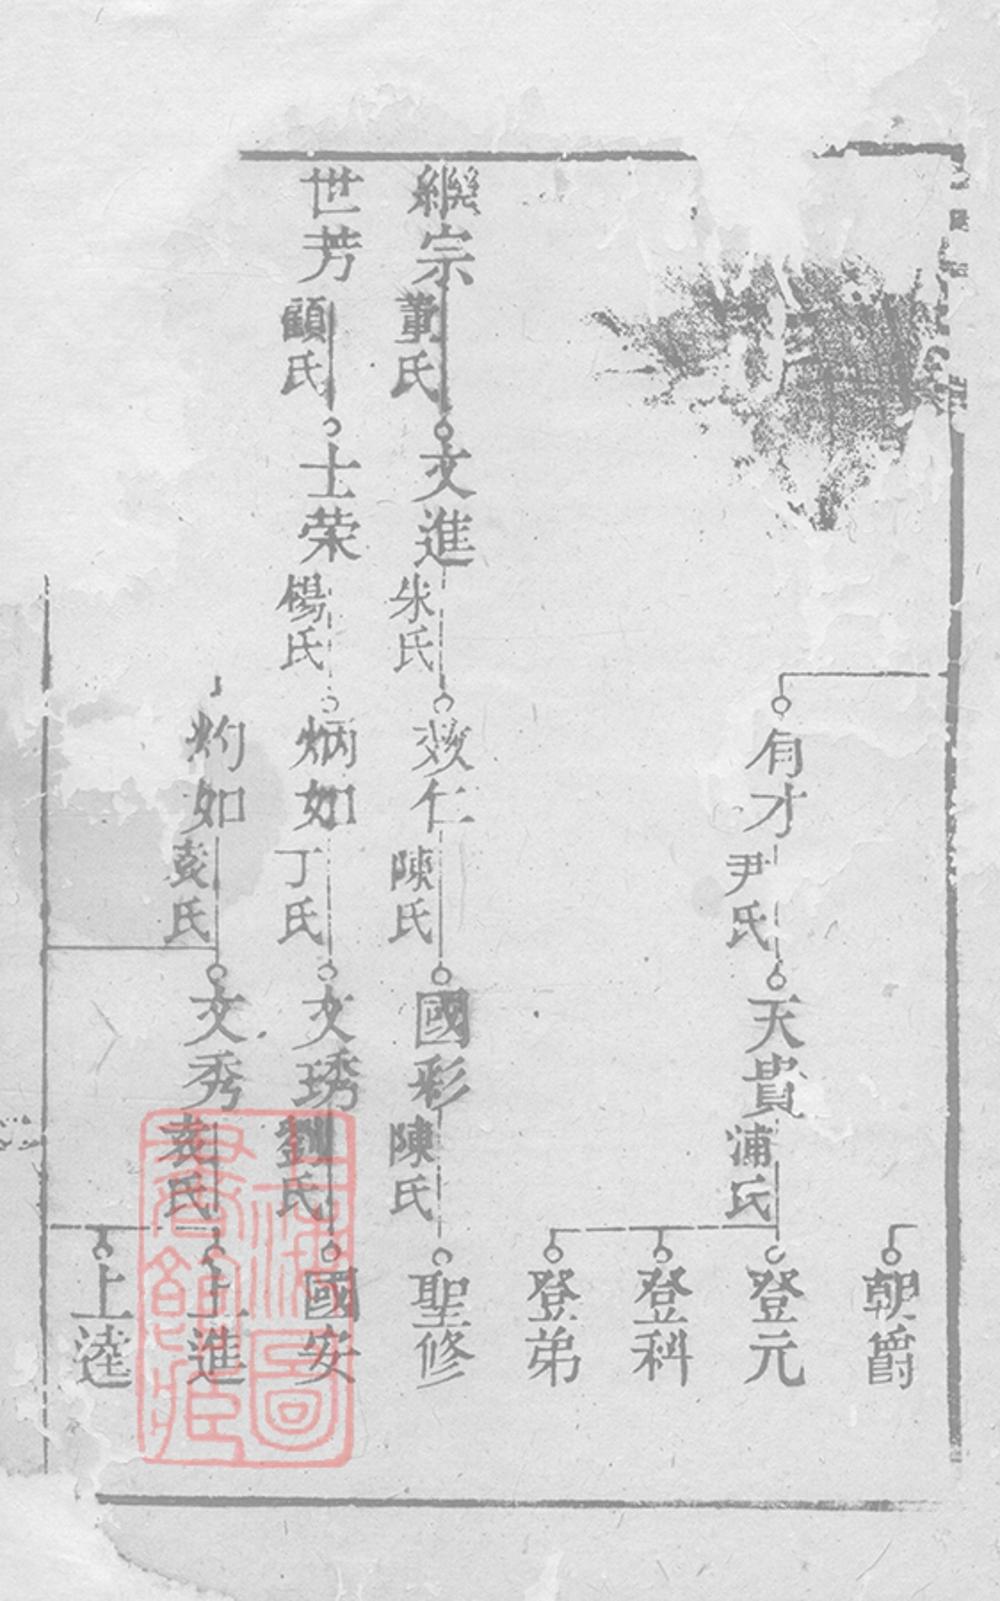 朝爵
有才
尹氏
天貴
浦氏
登元
登科
登弟
繼宗
董氏
文進
朱氏
效仁
陳氏
國彩
陳氏
聖修
世芳
顧氏
士荣
楊氏
炳如
丁氏
文琇
劉氏
國安
灼如
彭氏
文秀
袁氏
上進
上達
上海圖書館藏